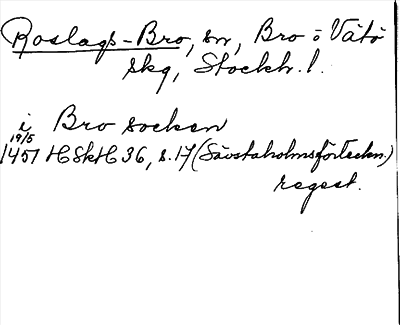 Roslags-Bro, sn, Bro o Vätö
skg, Stockh. l.
i Bro socken
19/5
1451 HSkH 36, s. 17 (Sävstaholmsförteckn.)
regest.